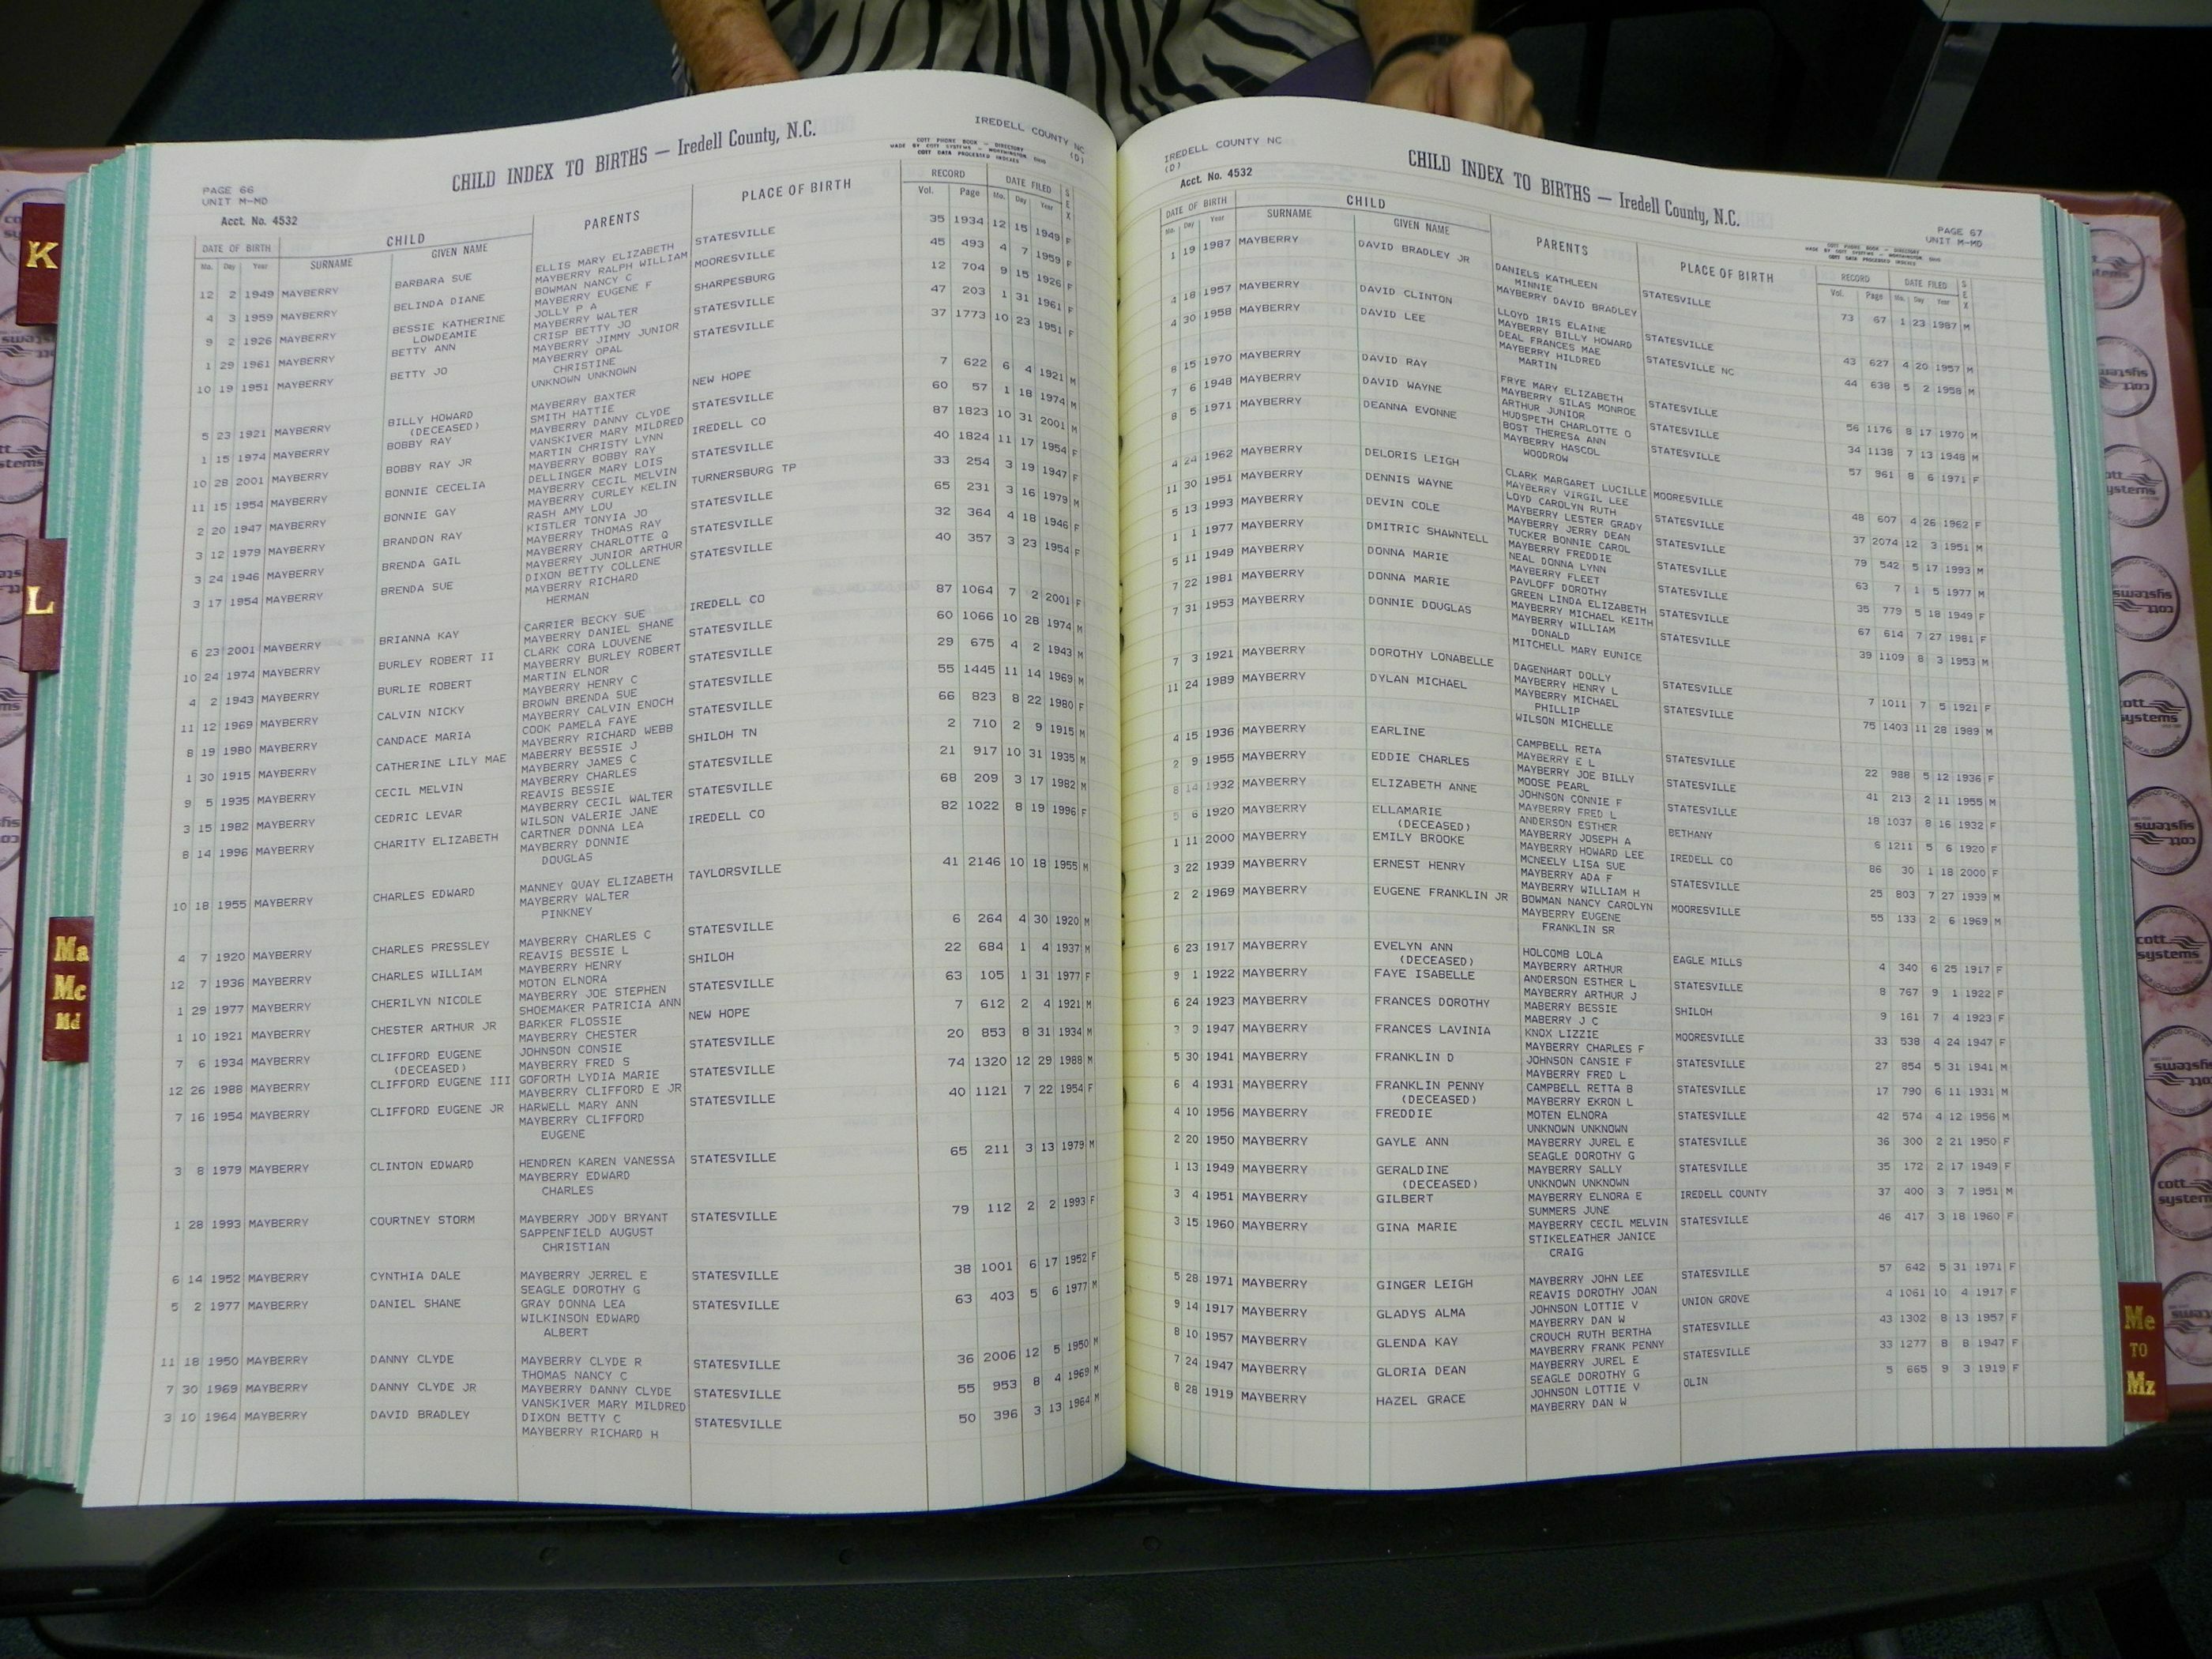 IREDELL COUNTY NC
(D)
CHILD INDEX TO BIRTHS — Iredell County, N.C.
COTT PHONE BOOK - DIRECTORY
MADE BY COTT SYSTEMS - WORTHINGTON, OHIO
COTT DATA PROCESSED INDEXES
PAGE 66
UNIT M-MD
Acct. No. 4532
DATE OF BIRTH CHILD PARENTS PLACE OF BIRTH RECORD DATE FILED SEX
Mo. Day Year SURNAME GIVEN NAME Vol. Page Mo. Day Year
12 2 1949 MAYBERRY BARBARA SUE ELLIS MARY ELIZABETH STATESVILLE 35 1934 12 15 1949 F
MAYBERRY RALPH WILLIAM
4 3 1959 MAYBERRY BELINDA DIANE BOWMAN NANCY C MOORESVILLE 45 493 4 7 1959 F
MAYBERRY EUGENE F
9 2 1926 MAYBERRY BESSIE KATHERINE JOLLY P A SHARPESBURG 12 704 9 15 1926 F
LOWDEAMIE MAYBERRY WALTER
1 29 1961 MAYBERRY BETTY ANN CRISP BETTY JO STATESVILLE 47 203 1 31 1961 F
MAYBERRY JIMMY JUNIOR
10 19 1951 MAYBERRY BETTY JO MAYBERRY OPAL STATESVILLE 37 1773 10 23 1951 F
CHRISTINE
UNKNOWN UNKNOWN
5 23 1921 MAYBERRY BILLY HOWARD MAYBERRY BAXTER NEW HOPE 7 622 6 4 1921 M
(DECEASED) SMITH HATTIE
1 15 1974 MAYBERRY BOBBY RAY MAYBERRY DANNY CLYDE STATESVILLE 60 57 1 18 1974 M
VANSKIVER MARY MILDRED
10 28 2001 MAYBERRY BOBBY RAY JR MARTIN CHRISTY LYNN IREDELL CO 87 1823 10 31 2001 M
MAYBERRY BOBBY RAY
11 15 1954 MAYBERRY BONNIE CECELIA DELLINGER MARY LOIS STATESVILLE 40 1824 11 17 1954 F
MAYBERRY CECIL MELVIN
2 20 1947 MAYBERRY BONNIE GAY MAYBERRY CURLEY KELIN TURNERSBURG TP 33 254 3 19 1947 F
RASH AMY LOU
3 12 1979 MAYBERRY BRANDON RAY KISTLER TONYIA JO STATESVILLE 65 231 3 16 1979 M
MAYBERRY THOMAS RAY
3 24 1946 MAYBERRY BRENDA GAIL MAYBERRY CHARLOTTE Q STATESVILLE 32 364 4 18 1946 F
MAYBERRY JUNIOR ARTHUR
3 17 1954 MAYBERRY BRENDA SUE DIXON BETTY COLLENE STATESVILLE 40 357 3 23 1954 F
MAYBERRY RICHARD
HERMAN
6 23 2001 MAYBERRY BRIANNA KAY CARRIER BECKY SUE IREDELL CO 87 1064 7 2 2001 F
MAYBERRY DANIEL SHANE
10 24 1974 MAYBERRY BURLEY ROBERT II CLARK CORA LOUVENE STATESVILLE 60 1066 10 28 1974 M
MAYBERRY BURLEY ROBERT
4 2 1943 MAYBERRY BURLIE ROBERT MARTIN ELNOR STATESVILLE 29 675 4 2 1943 M
MAYBERRY HENRY C
11 12 1969 MAYBERRY CALVIN NICKY BROWN BRENDA SUE STATESVILLE 55 1445 11 14 1969 M
MAYBERRY CALVIN ENOCH
8 19 1980 MAYBERRY CANDACE MARIA COOK PAMELA FAYE STATESVILLE 66 823 8 22 1980 F
MAYBERRY RICHARD WEBB
1 30 1915 MAYBERRY CATHERINE LILY MAE MABERRY BESSIE J SHILOH TN 2 710 2 9 1915 M
MAYBERRY JAMES C
9 5 1935 MAYBERRY CECIL MELVIN MAYBERRY CHARLES STATESVILLE 21 917 10 31 1935 M
REAVIS BESSIE
3 15 1982 MAYBERRY CEDRIC LEVAR MAYBERRY CECIL WALTER STATESVILLE 68 209 3 17 1982 M
WILSON VALERIE JANE
8 14 1996 MAYBERRY CHARITY ELIZABETH CARTNER DONNA LEA IREDELL CO 82 1022 8 19 1996 F
MAYBERRY DONNIE
DOUGLAS
10 18 1955 MAYBERRY CHARLES EDWARD MANNEY QUAY ELIZABETH TAYLORSVILLE 41 2146 10 18 1955 M
MAYBERRY WALTER
PINKNEY
4 7 1920 MAYBERRY CHARLES PRESSLEY MAYBERRY CHARLES C STATESVILLE 6 264 4 30 1920 M
REAVIS BESSIE L
12 7 1936 MAYBERRY CHARLES WILLIAM MAYBERRY HENRY SHILOH 22 684 1 4 1937 M
MOTON ELNORA
1 29 1977 MAYBERRY CHERILYN NICOLE MAYBERRY JOE STEPHEN STATESVILLE 63 105 1 31 1977 F
SHOEMAKER PATRICIA ANN
1 10 1921 MAYBERRY CHESTER ARTHUR JR BARKER FLOSSIE NEW HOPE 7 612 2 4 1921 M
MAYBERRY CHESTER
7 6 1934 MAYBERRY CLIFFORD EUGENE JOHNSON CONSIE STATESVILLE 20 853 8 31 1934 M
(DECEASED) MAYBERRY FRED S
12 26 1988 MAYBERRY CLIFFORD EUGENE III GOFORTH LYDIA MARIE STATESVILLE 74 1320 12 29 1988 M
MAYBERRY CLIFFORD E JR
7 16 1954 MAYBERRY CLIFFORD EUGENE JR HARWELL MARY ANN STATESVILLE 40 1121 7 22 1954 F
MAYBERRY CLIFFORD
EUGENE
3 8 1979 MAYBERRY CLINTON EDWARD HENDREN KAREN VANESSA STATESVILLE 65 211 3 13 1979 M
MAYBERRY EDWARD
CHARLES
1 28 1993 MAYBERRY COURTNEY STORM MAYBERRY JODY BRYANT STATESVILLE 79 112 2 2 1993 F
SAPPENFIELD AUGUST
CHRISTIAN
6 14 1952 MAYBERRY CYNTHIA DALE MAYBERRY JERREL E STATESVILLE 38 1001 6 17 1952 F
SEAGLE DOROTHY G
5 2 1977 MAYBERRY DANIEL SHANE GRAY DONNA LEA STATESVILLE 63 403 5 6 1977 M
WILKINSON EDWARD
ALBERT
11 18 1950 MAYBERRY DANNY CLYDE MAYBERRY CLYDE R STATESVILLE 36 2006 12 5 1950 M
THOMAS NANCY C
7 30 1969 MAYBERRY DANNY CLYDE JR MAYBERRY DANNY CLYDE STATESVILLE 55 953 8 4 1969 M
VANSKIVER MARY MILDRED
3 10 1964 MAYBERRY DAVID BRADLEY DIXON BETTY C STATESVILLE 50 396 3 13 1964 M
MAYBERRY RICHARD H
IREDELL COUNTY NC
(D)
CHILD INDEX TO BIRTHS — Iredell County, N.C.
Acct. No. 4532
PAGE 67
UNIT M-MD
COTT PHONE BOOK - DIRECTORY
MADE BY COTT SYSTEMS - WORTHINGTON, OHIO
COTT DATA PROCESSED INDEXES
DATE OF BIRTH CHILD PARENTS PLACE OF BIRTH RECORD DATE FILED SEX
Mo. Day Year SURNAME GIVEN NAME Vol. Page Mo. Day Year
1 19 1987 MAYBERRY DAVID BRADLEY JR DANIELS KATHLEEN STATESVILLE 73 67 1 23 1987 M
MINNIE
MAYBERRY DAVID BRADLEY
4 18 1957 MAYBERRY DAVID CLINTON LLOYD IRIS ELAINE STATESVILLE 43 627 4 20 1957 M
MAYBERRY BILLY HOWARD
4 30 1958 MAYBERRY DAVID LEE DEAL FRANCES MAE STATESVILLE NC 44 638 5 2 1958 M
MAYBERRY HILDRED
MARTIN
8 15 1970 MAYBERRY DAVID RAY FRYE MARY ELIZABETH STATESVILLE 56 1176 8 17 1970 M
MAYBERRY SILAS MONROE
7 6 1948 MAYBERRY DAVID WAYNE ARTHUR JUNIOR STATESVILLE 34 1138 7 13 1948 M
HUDSPETH CHARLOTTE O
8 5 1971 MAYBERRY DEANNA EVONNE BOST THERESA ANN STATESVILLE 57 961 8 6 1971 F
MAYBERRY HASCOL
WOODROW
4 24 1962 MAYBERRY DELORIS LEIGH CLARK MARGARET LUCILLE MOORESVILLE 48 607 4 26 1962 F
MAYBERRY VIRGIL LEE
11 30 1951 MAYBERRY DENNIS WAYNE LOYD CAROLYN RUTH STATESVILLE 37 2074 12 3 1951 M
MAYBERRY LESTER GRADY
5 13 1993 MAYBERRY DEVIN COLE MAYBERRY JERRY DEAN STATESVILLE 79 542 5 17 1993 M
TUCKER BONNIE CAROL
1 1 1977 MAYBERRY DMITRIC SHAWNTELL MAYBERRY FREDDIE STATESVILLE 63 7 1 5 1977 M
NEAL DONNA LYNN
5 11 1949 MAYBERRY DONNA MARIE MAYBERRY FLEET STATESVILLE 35 779 5 18 1949 F
PAVLOFF DOROTHY
7 22 1981 MAYBERRY DONNA MARIE GREEN LINDA ELIZABETH STATESVILLE 67 614 7 27 1981 F
MAYBERRY MICHAEL KEITH
7 31 1953 MAYBERRY DONNIE DOUGLAS MAYBERRY WILLIAM STATESVILLE 39 1109 8 3 1953 M
DONALD
MITCHELL MARY EUNICE
7 3 1921 MAYBERRY DOROTHY LONABELLE DAGENHART DOLLY STATESVILLE 7 1011 7 5 1921 F
MAYBERRY HENRY L
11 24 1989 MAYBERRY DYLAN MICHAEL MAYBERRY MICHAEL STATESVILLE 75 1403 11 28 1989 M
PHILLIP
WILSON MICHELLE
4 15 1936 MAYBERRY EARLINE CAMPBELL RETA STATESVILLE 22 988 5 12 1936 F
MAYBERRY E L
2 9 1955 MAYBERRY EDDIE CHARLES MAYBERRY JOE BILLY STATESVILLE 41 213 2 11 1955 M
MOOSE PEARL
8 14 1932 MAYBERRY ELIZABETH ANNE JOHNSON CONNIE F STATESVILLE 18 1037 8 16 1932 F
MAYBERRY FRED L
5 6 1920 MAYBERRY ELLAMARIE ANDERSON ESTHER BETHANY 6 1211 5 6 1920 F
(DECEASED) MAYBERRY JOSEPH A
1 11 2000 MAYBERRY EMILY BROOKE MAYBERRY HOWARD LEE IREDELL CO 86 30 1 18 2000 F
MCNEELY LISA SUE
3 22 1939 MAYBERRY ERNEST HENRY MAYBERRY ADA F STATESVILLE 25 803 7 27 1939 M
MAYBERRY WILLIAM H
2 2 1969 MAYBERRY EUGENE FRANKLIN JR BOWMAN NANCY CAROLYN MOORESVILLE 55 133 2 6 1969 M
MAYBERRY EUGENE
FRANKLIN SR
6 23 1917 MAYBERRY EVELYN ANN HOLCOMB LOLA EAGLE MILLS 4 340 6 25 1917 F
(DECEASED) MAYBERRY ARTHUR
9 1 1922 MAYBERRY FAYE ISABELLE ANDERSON ESTHER L STATESVILLE 8 767 9 1 1922 F
MAYBERRY ARTHUR J
6 24 1923 MAYBERRY FRANCES DOROTHY MABERRY BESSIE SHILOH 9 161 7 4 1923 F
MABERRY J C
3 9 1947 MAYBERRY FRANCES LAVINIA KNOX LIZZIE MOORESVILLE 33 538 4 24 1947 F
MAYBERRY CHARLES F
5 30 1941 MAYBERRY FRANKLIN D JOHNSON CANSIE F STATESVILLE 27 854 5 31 1941 M
MAYBERRY FRED L
6 4 1931 MAYBERRY FRANKLIN PENNY CAMPBELL RETTA B STATESVILLE 17 790 6 11 1931 M
(DECEASED) MAYBERRY EKRON L
4 10 1956 MAYBERRY FREDDIE MOTEN ELNORA STATESVILLE 42 574 4 12 1956 M
UNKNOWN UNKNOWN
2 20 1950 MAYBERRY GAYLE ANN MAYBERRY JUREL E STATESVILLE 36 300 2 21 1950 F
SEAGLE DOROTHY G
1 13 1949 MAYBERRY GERALDINE MAYBERRY SALLY STATESVILLE 35 172 2 17 1949 F
(DECEASED) UNKNOWN UNKNOWN
3 4 1951 MAYBERRY GILBERT MAYBERRY ELNORA E IREDELL COUNTY 37 400 3 7 1951 M
SUMMERS JUNE
3 15 1960 MAYBERRY GINA MARIE MAYBERRY CECIL MELVIN STATESVILLE 46 417 3 18 1960 F
STIKELEATHER JANICE
CRAIG
5 28 1971 MAYBERRY GINGER LEIGH MAYBERRY JOHN LEE STATESVILLE 57 642 5 31 1971 F
REAVIS DOROTHY JOAN
9 14 1917 MAYBERRY GLADYS ALMA JOHNSON LOTTIE V UNION GROVE 4 1061 10 4 1917 F
MAYBERRY DAN W
8 10 1957 MAYBERRY GLENDA KAY CROUCH RUTH BERTHA STATESVILLE 43 1302 8 13 1957 F
MAYBERRY FRANK PENNY
7 24 1947 MAYBERRY GLORIA DEAN MAYBERRY JUREL E STATESVILLE 33 1277 8 8 1947 F
SEAGLE DOROTHY G
8 28 1919 MAYBERRY HAZEL GRACE JOHNSON LOTTIE V OLIN 5 665 9 3 1919 F
MAYBERRY DAN W
K
L
Ma
Mc
Md
Me
TO
Mz
cott
systems